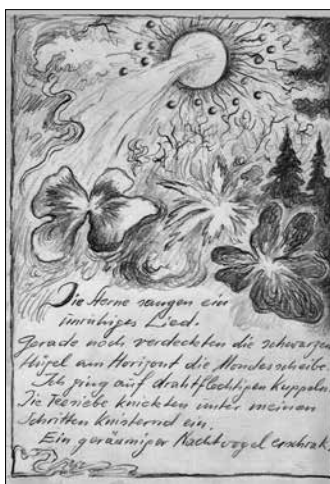 Die Sterne sangen ein
unruhiges Lied.
Gerade noch verdeckten die schwarzen
Hügel am Horizont die Mondesscheibe.
Ich ging auf drahtflechtigen Kuppeln.
Die Triebe knickten unter meinen
Schritten knisternd ein.
Ein geräumiger Nachtvogel erschrak.